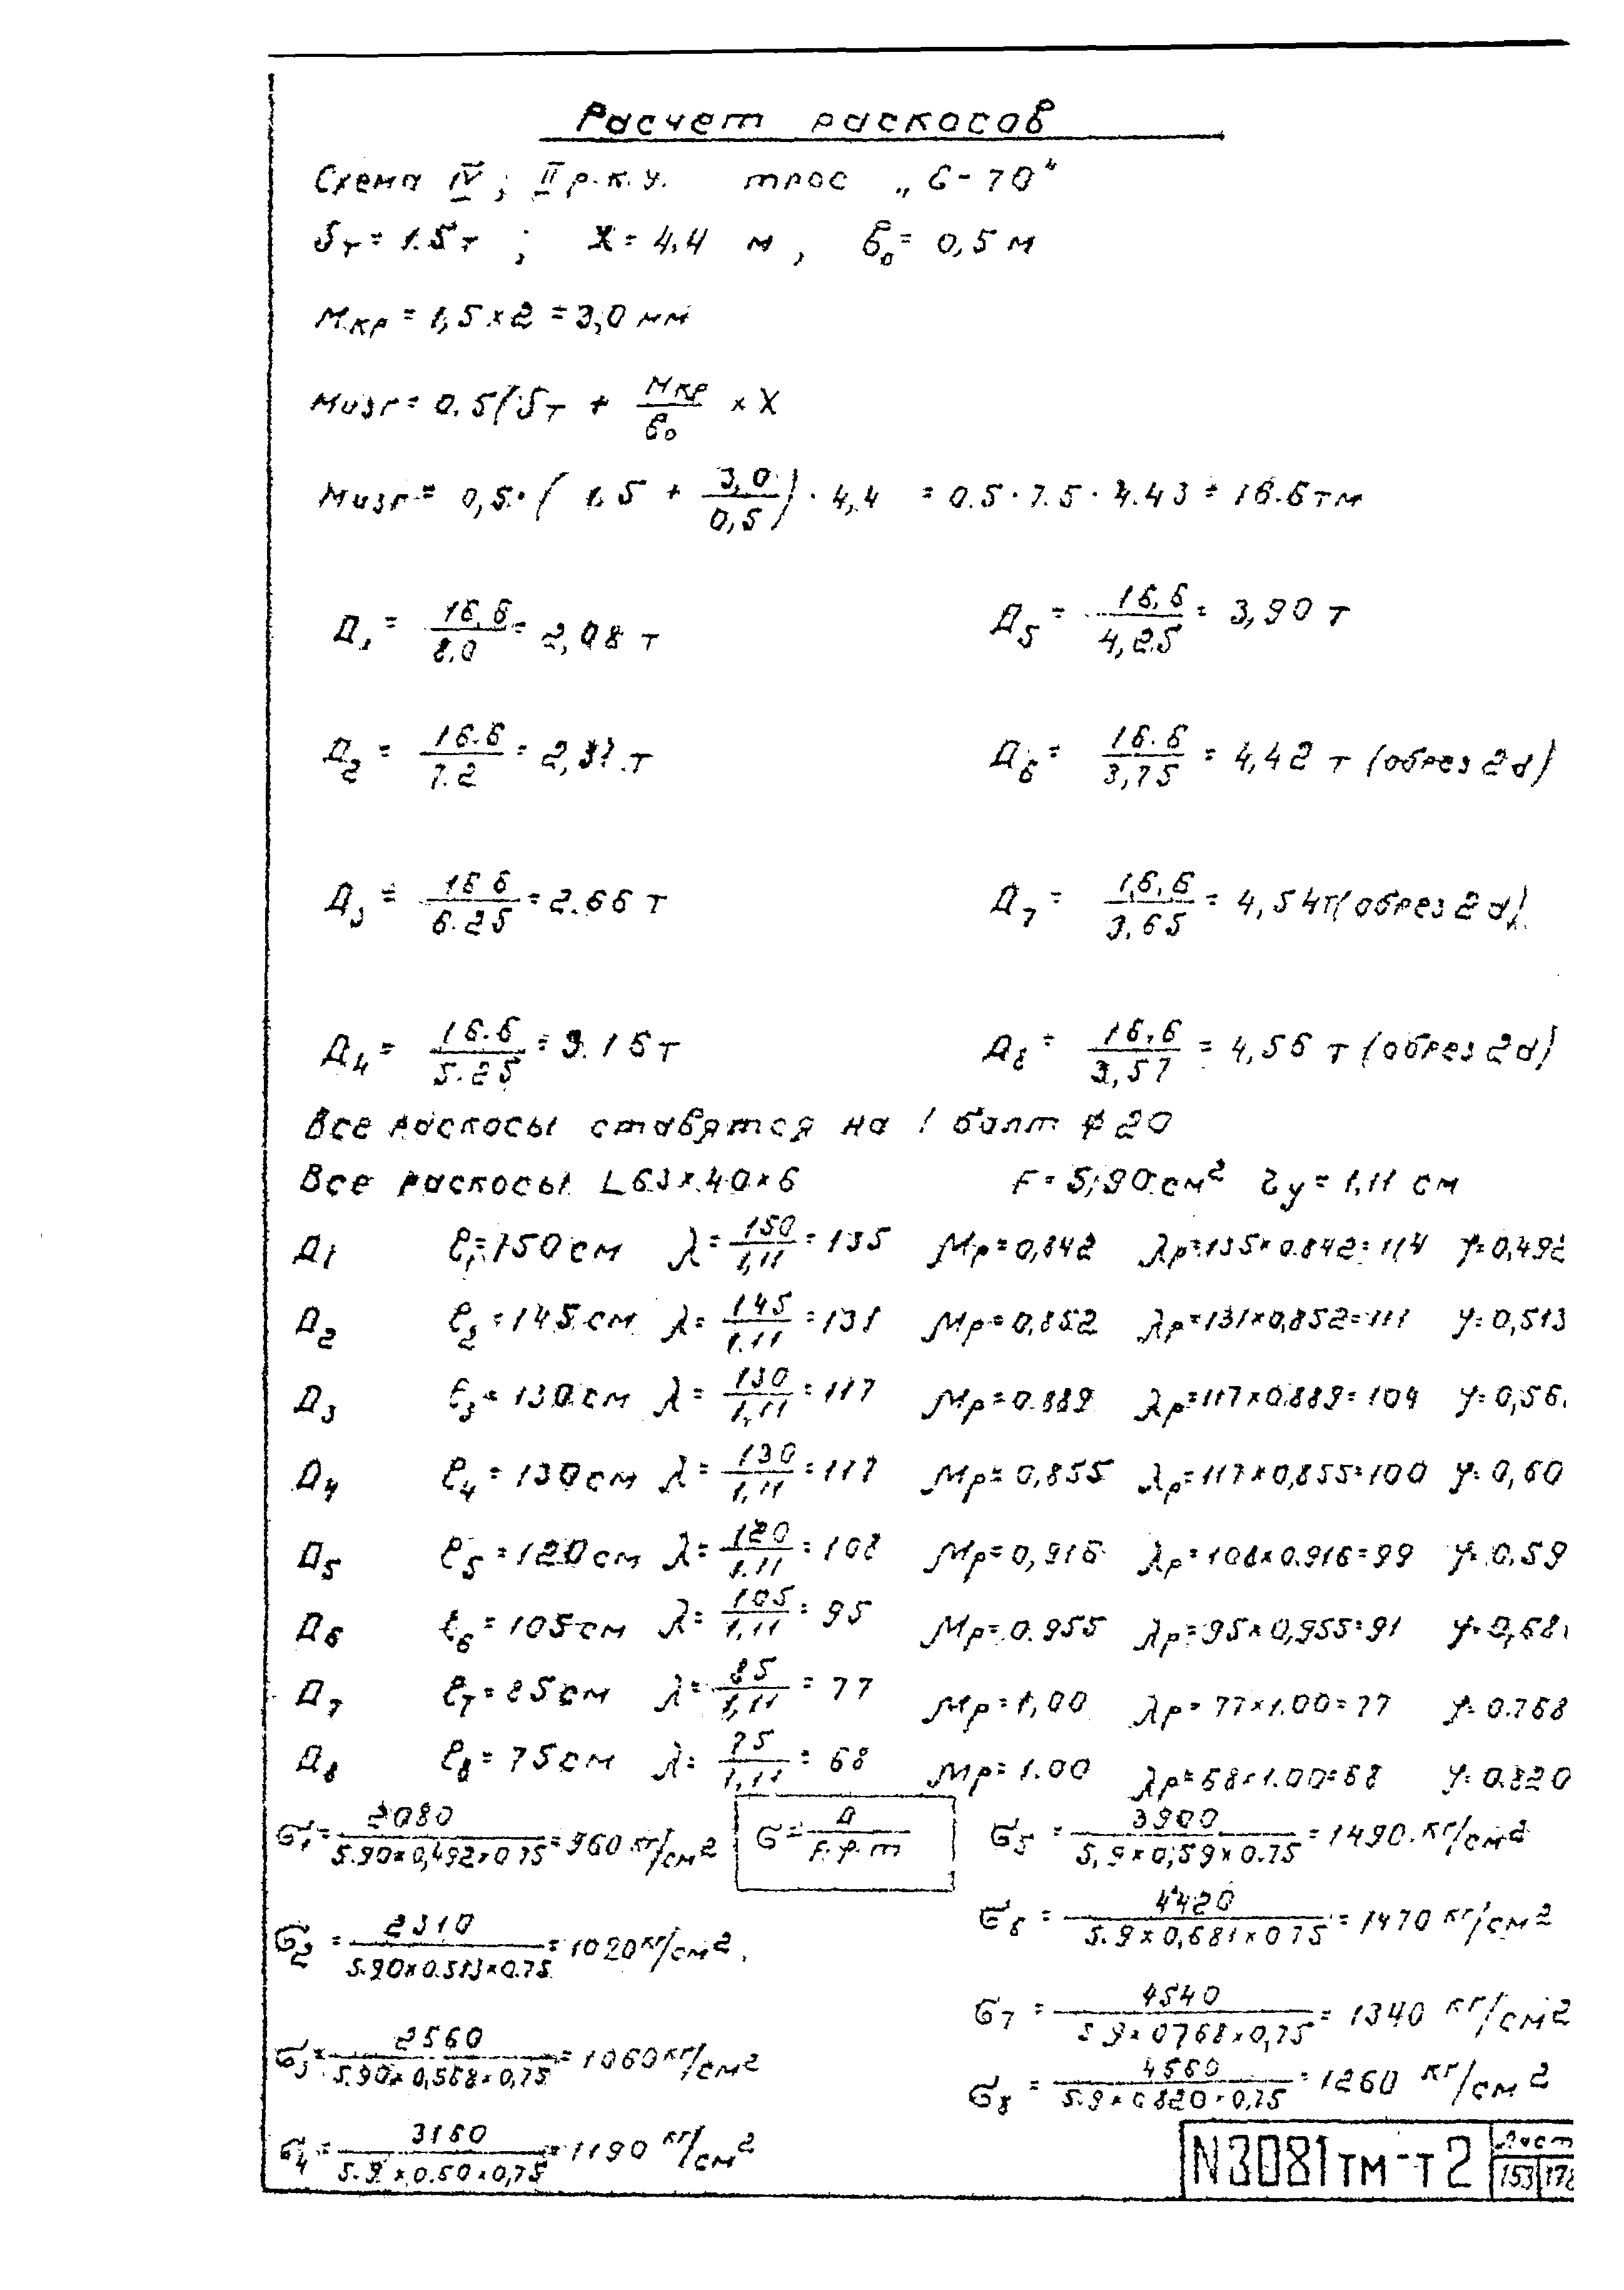 Расчет раскосов
Схема IV ; II р.к.у. трос „С-70"
Sт = 1.5т ; X = 4,4 м , б₀ = 0,5 м
Мкр = 1,5 × 2 = 3,0 мм
Мизг = 0.5(Sт + Мкр/б₀ × X
Мизг = 0,5·( 1,5 + 3,0/0,5) · 4,4 = 0.5 · 7.5 · 4.43 = 16.6 тм
Д₁ = 16,6/8.0 = 2,08 т
Д₅ = 16,6/4,25 = 3,90 т
Д₂ = 16.6/7.2 = 2,31 т
Д₆ = 16.6/3,75 = 4,42 т (обрез 2d)
Д₃ = 16 6/6.25 = 2.66 т
Д₇ = 16,6/3,65 = 4,54т (обрез 2d)
Д₄ = 16.6/5.25 = 3.16 т
Д₈ = 16,6/3,57 = 4,56 т (обрез 2d)
Все раскосы ставятся на 1 болт ϕ20
Все раскосы L 63×40×6 F = 5,90 см² ry = 1,11 см
Д1 ℓ₁=150 см λ = 150/1,11 = 135 Mр = 0,842 λр = 135×0.842 = 114 φ = 0,492
Д₂ ℓ₂ = 145 см λ = 145/1.11 = 131 Mр = 0,852 λр = 131×0,852 = 111 φ = 0,513
Д₃ ℓ₃ = 130 см λ = 130/1,11 = 117 Mр = 0.889 λр = 117×0.889 = 104 φ = 0,56
Д₄ ℓ₄ = 130 см λ = 130/1,11 = 117 Mр = 0,855 λр = 117×0,855 = 100 φ = 0,60
Д₅ ℓ₅ = 120 см λ = 120/1.11 = 108 Mр = 0,916 λр = 108×0.916 = 99 φ = 0.59
Д₆ ℓ₆ = 105 см λ = 105/1,11 = 95 Mр = 0.955 λр = 95×0,955 = 91 φ = 0,681
Д₇ ℓ₇ = 85 см λ = 85/1,11 = 77 Mр = 1,00 λр = 77×1.00 = 77 φ = 0.768
Д₈ ℓ₈ = 75 см λ = 75/1,11 = 68 Mр = 1.00 λр = 68×1.00 = 68 φ = 0.820
σ₁ = 2080/5.90×0,492×0 75 = 960 кг/см²
σ = Д/F·φ·m
σ₅ = 3900/5,9×0,59×0.75 = 1490 кг/см²
σ₂ = 2310/5.90×0.513×0.75 = 1020 кг/см²
σ₆ = 4420/5.9×0,681×0 75 = 1470 кг/см²
σ₇ = 4540/5 9×0768×0,75 = 1340 кг/см²
σ₃ = 2560/5.90×0,568×0,75 = 1060 кг/см²
σ₈ = 4560/5.9×0 820×0,75 = 1260 кг/см²
σ₄ = 3160/5.9×0.60×0,75 = 1190 кг/см²
N3081тм-т2
Лист
153 178